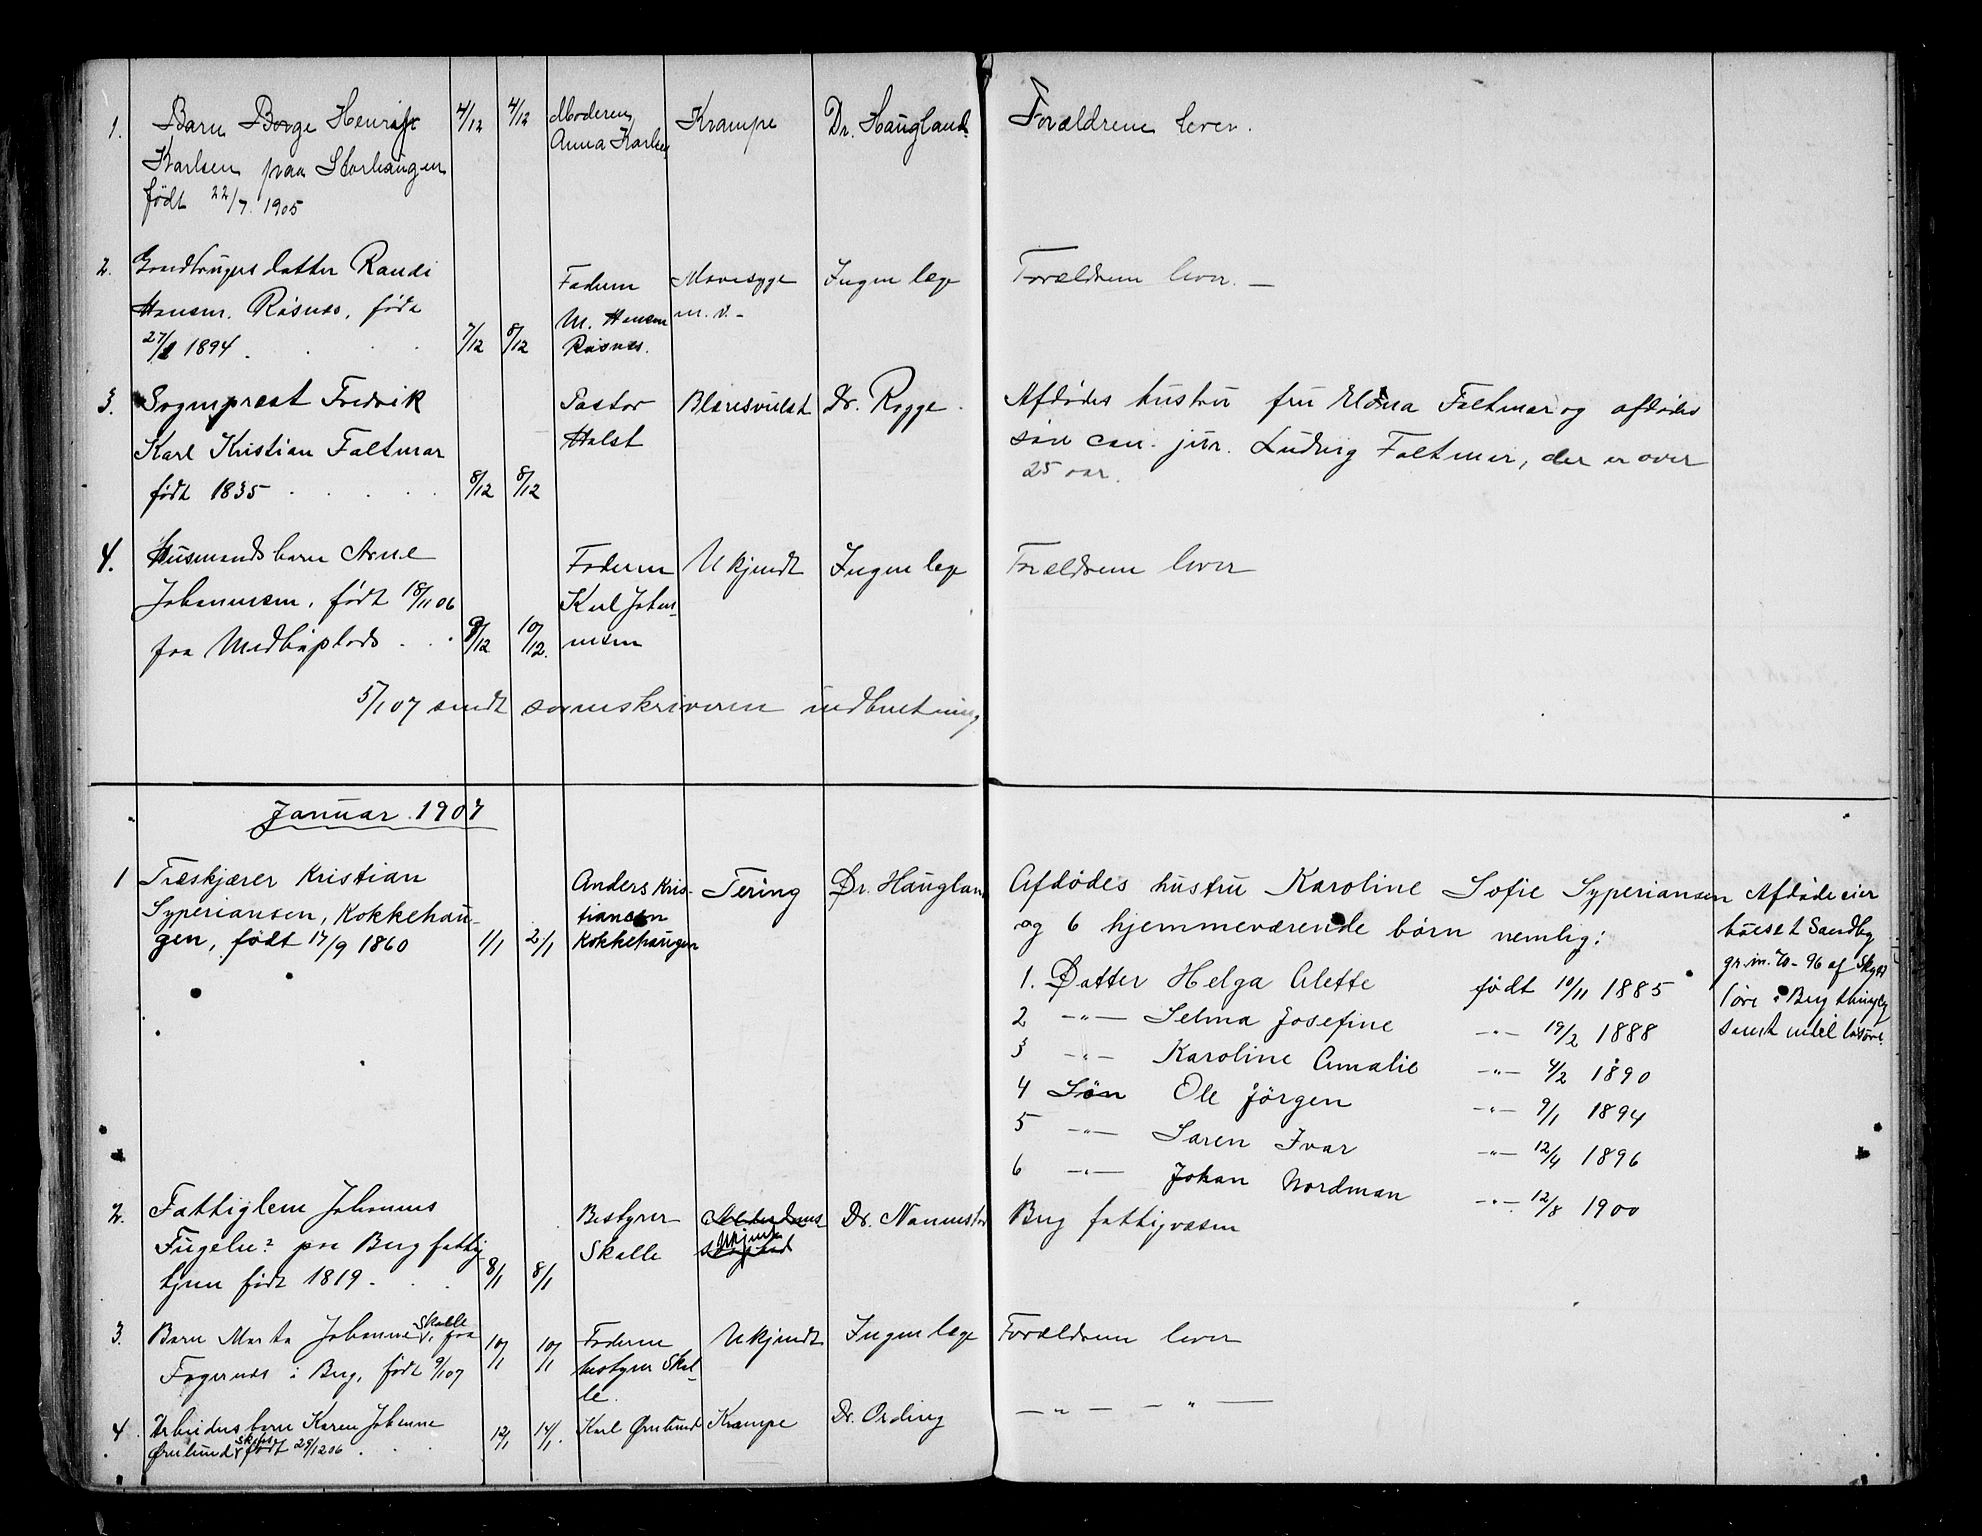 1. Barn Borge Henrik 4/12 4/12 Moderen Krampe Dr. Haugland Forældrene lever.
Karlsen paa Storhaugen Anna Karlsen
født 22/7 1905
2. Gaardbrugers datter Randi Faderen Mavesyge Ingen læge Forældrene lever. —
Hansen. Risnes, født M. Hansen m. v. -
27/2 1894 . . . 7/12 8/12 Risnes.
3. Sogneprest Fredrik Pastor Blæresvulst Dr. Rogge. Afdødes hustru fru Elina Faltmar og afdødes
Karl Kristian Faltmar Holst søn can. jur. Ludvig Faltmar, der er over
født 1835 . . . . . 8/12 8/12 25 aar.
4. Husmandsbarn Arne Faderen Ukjendt Ingen læge Forældrene lever
Johannesen. født 18/11 06 Karl Johan-
fra Medbøplads . . 9/12 10/12. nesen
5/1 07 sendt sorenskriveren indberetning
Januar. 1907
1 Træskjærer Kristian Anders Kris- Tering Dr. Haugland Afdødes hustru Karoline Sofie Syperiansen Afdøde eier
Syperiansen, Kokkehau- tiansen og 6 hjemmeværende børn nemlig: huset Sandby
gen, født 17/9 1860 1/1 2/1 Kokkehaugen gr. n. 70-96 af Skyld
1. Datter Helga Alette født 10/11 1885 1 øre i Berg thinglag
2 —"— Selma Josefine —"— 19/2 1888 samt endel løsøre.
3 —"— Karoline Amalie —"— 4/2 1890
4 Søn Ole Jörgen —"— 9/1 1894
5 —"— Søren Ivar —"— 12/4 1896
6 —"— Johan Nordman —"— 12/8 1900
2. Fattiglem Johannes Bestyrer Alderdoms Dr. Nannestad Berg fattigvæsen
paa Berg fattig- Skalle Ukjendt
hjem født 1819 . . . 8/1 8/1
3. Barn Marta Johanne Skalle, fra 10/1 10/1 Faderen Ukjendt Ingen læge Forældrene lever
Fagernes i Berg, født 9/1 07 bestyrer Skal-
le.
4. Arbeidersbarn Karen Johanne 12/1 14/1. Karl Ørelund Krampe Dr. Ording — " — — " —
Ørelund født 29/12 06 . . .